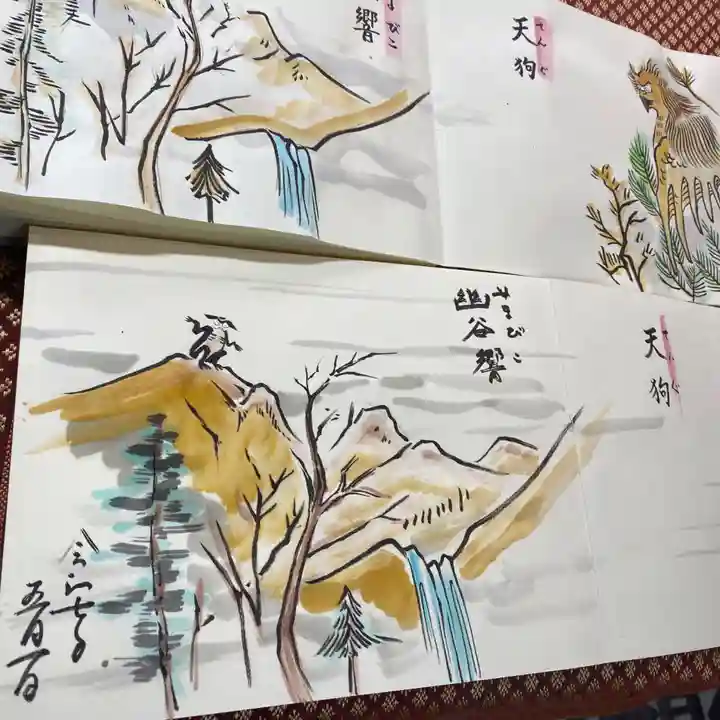 びこ
響
てんぐ
天狗
やまびこ
幽谷響
てんぐ
天狗
令和七年